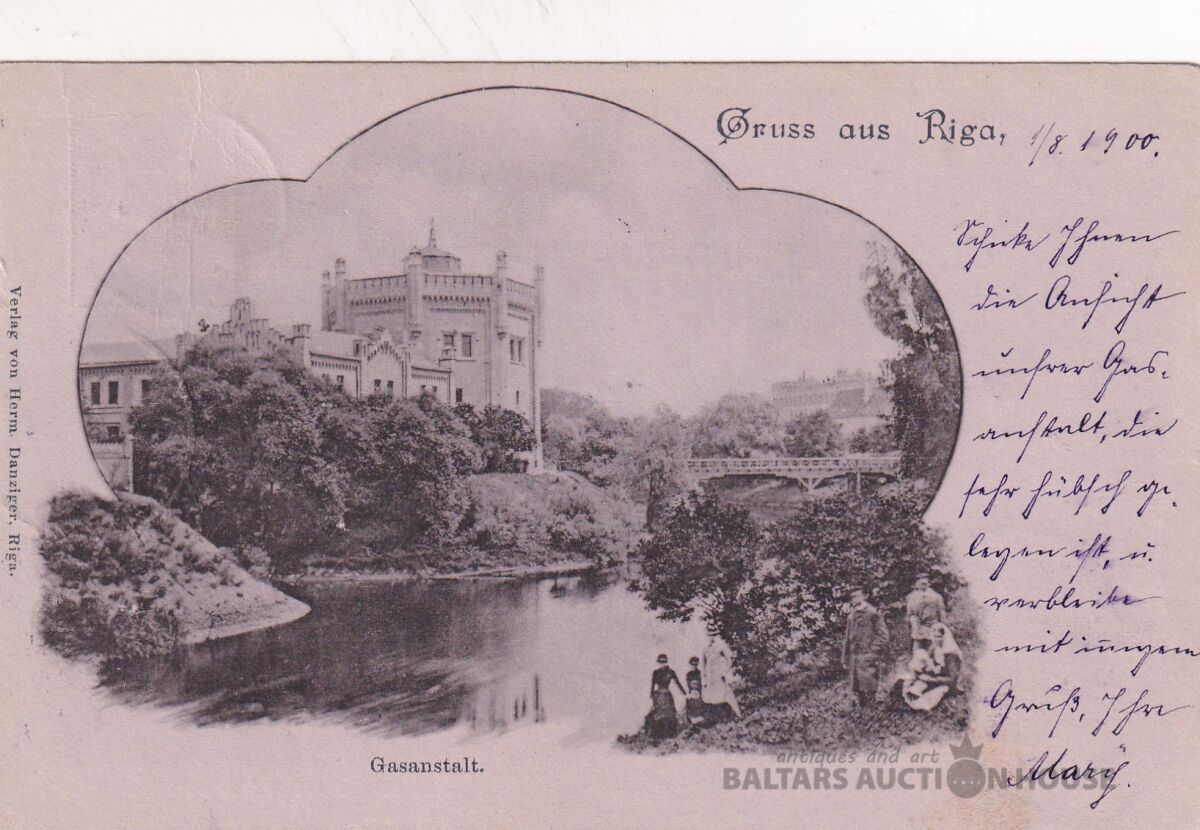 Gruss aus Riga, 1/8. 1900.
Schicke Ihnen
die Ansicht
unsrer Gas-
anstalt, die
sehr hübsch ge-
legen ist, u.
verbleibe
mit innigem
Gruß, Ihre
Mary.
Verlag von Herm. Danziger, Riga.
Gasanstalt.
antiques and art
BALTARS AUCTION HOUSE